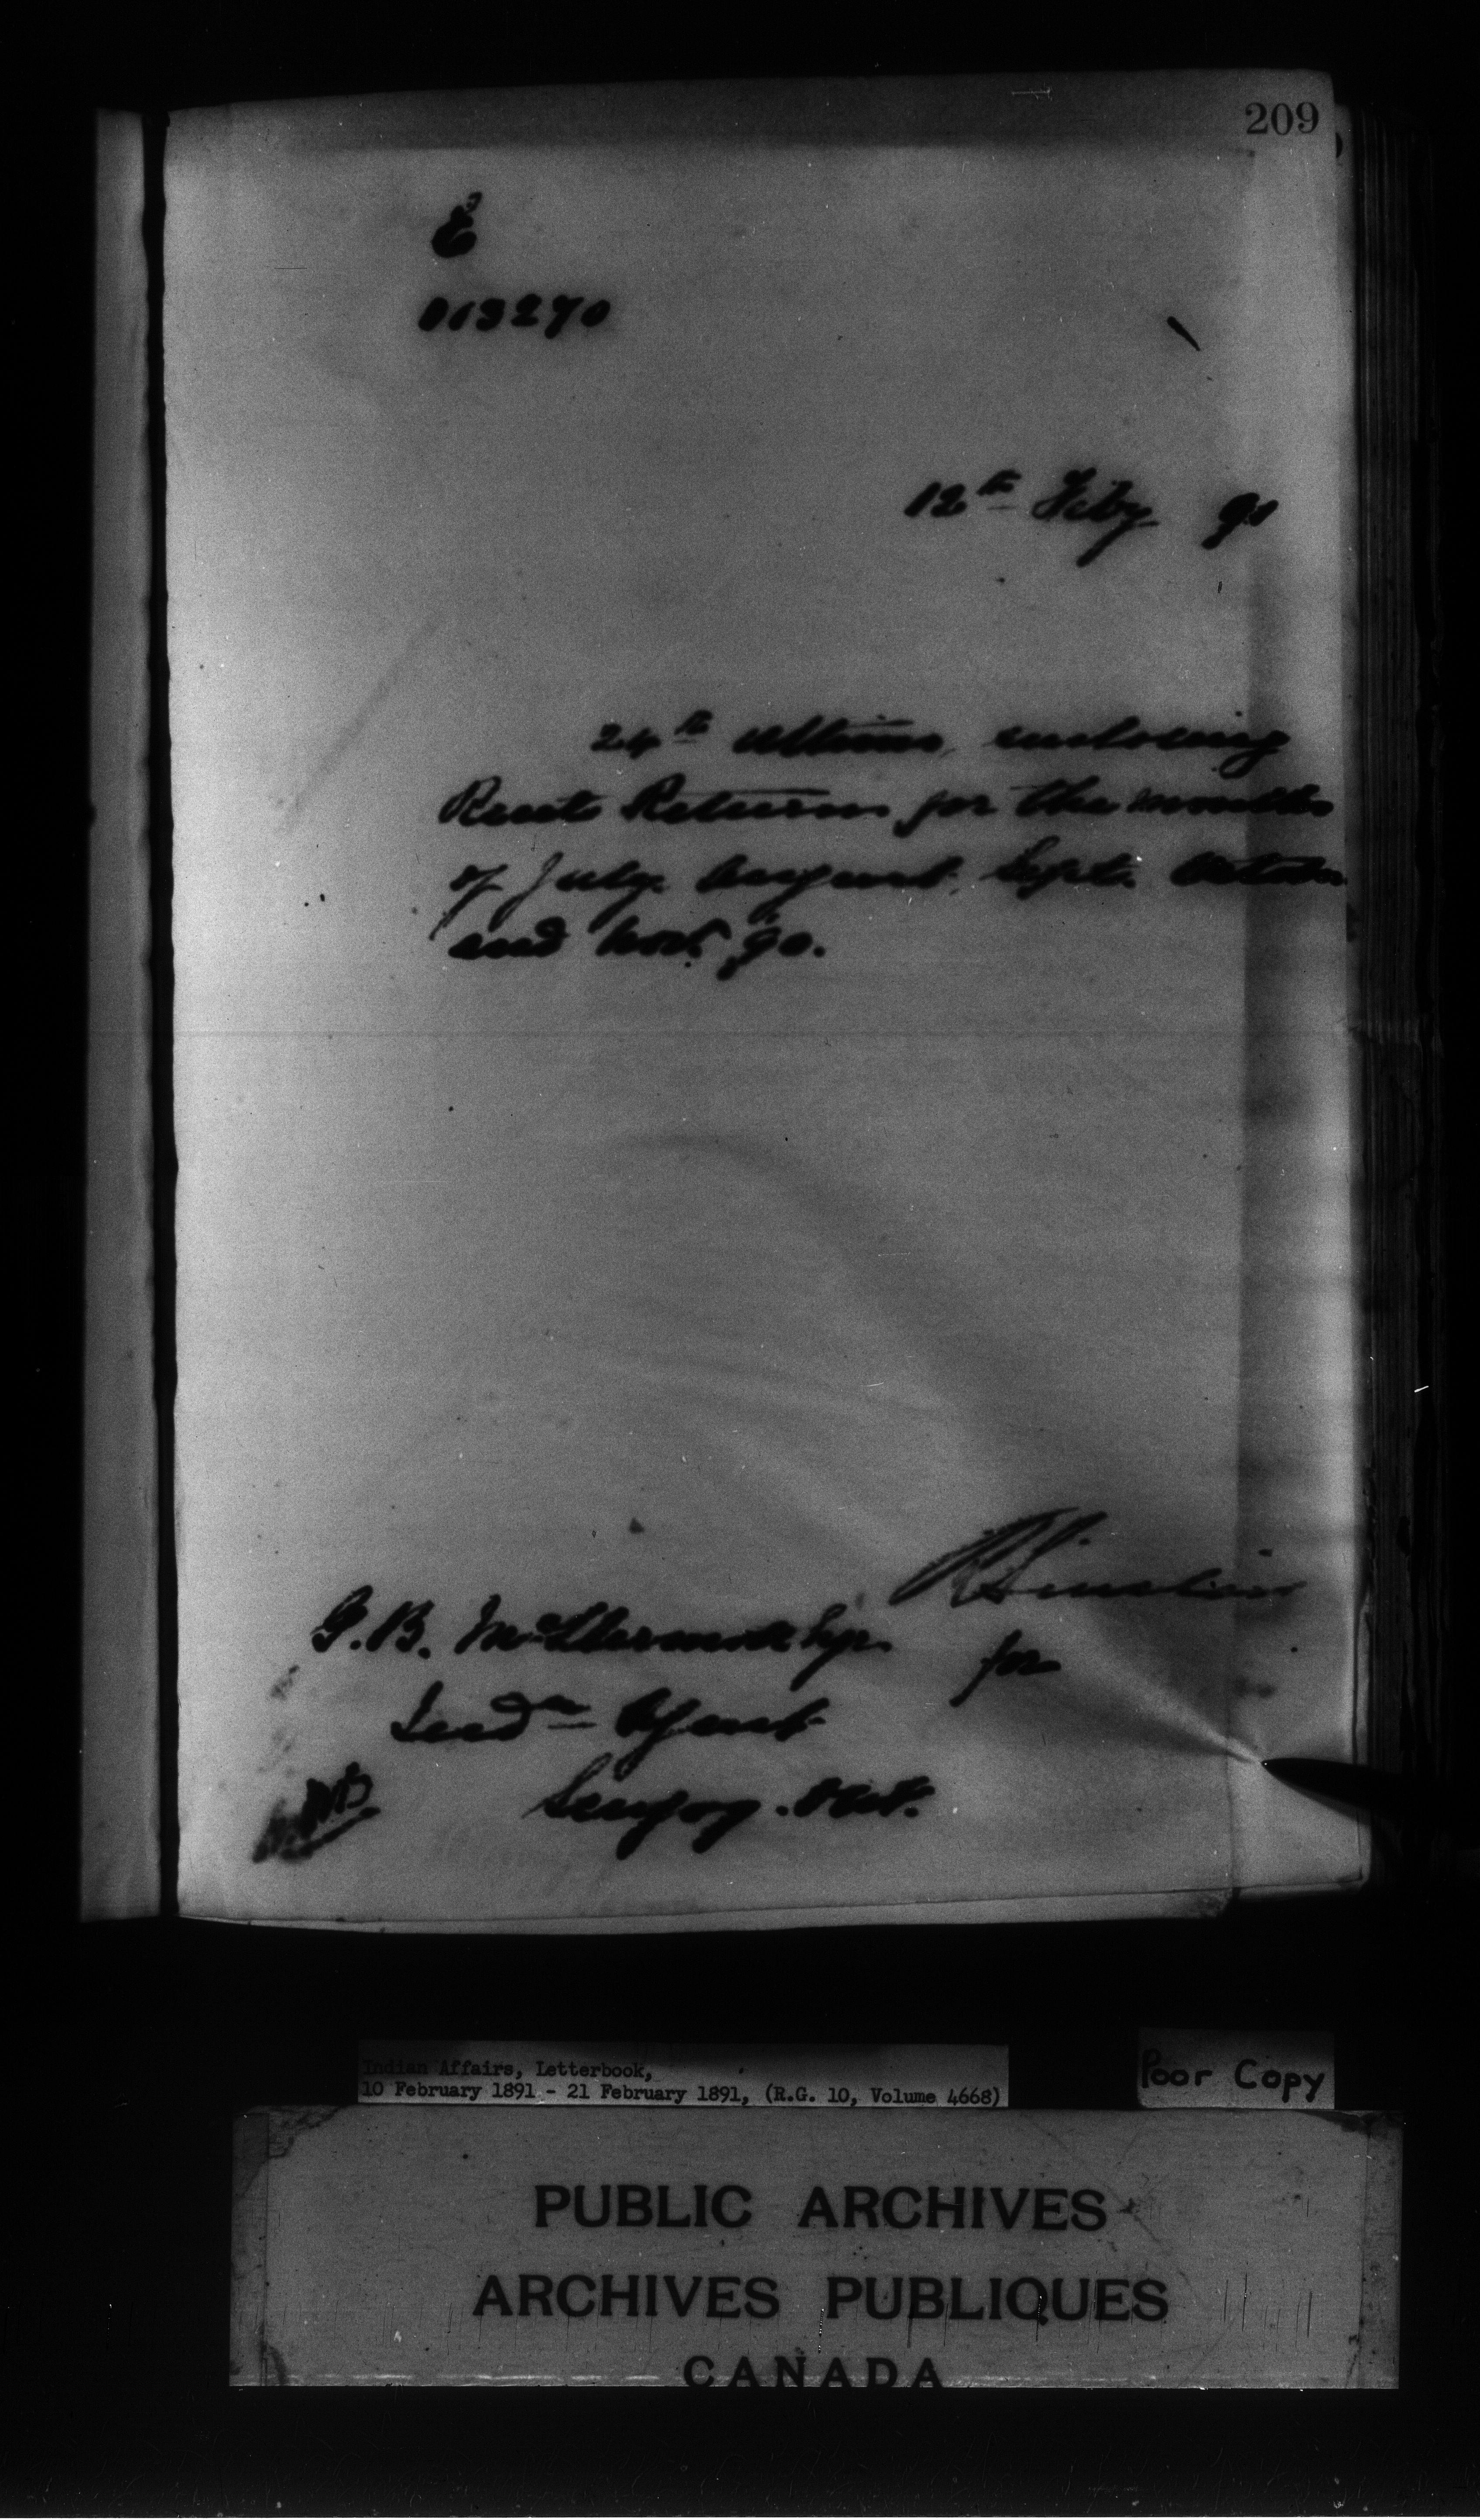 209
E
013270
12th Feby 91
24th ultimo, enclosing
Rent Returns for the months
of July. August. Sept. October
and Nov. 90.
for
G.B. McDermot Esqr.
Indn Agent
Scugog. Ont.
Indian Affairs, Letterbook,
10 February 1891 - 21 February 1891, (R.G. 10, Volume 4668)
Poor Copy
PUBLIC ARCHIVES
ARCHIVES PUBLIQUES
CANADA